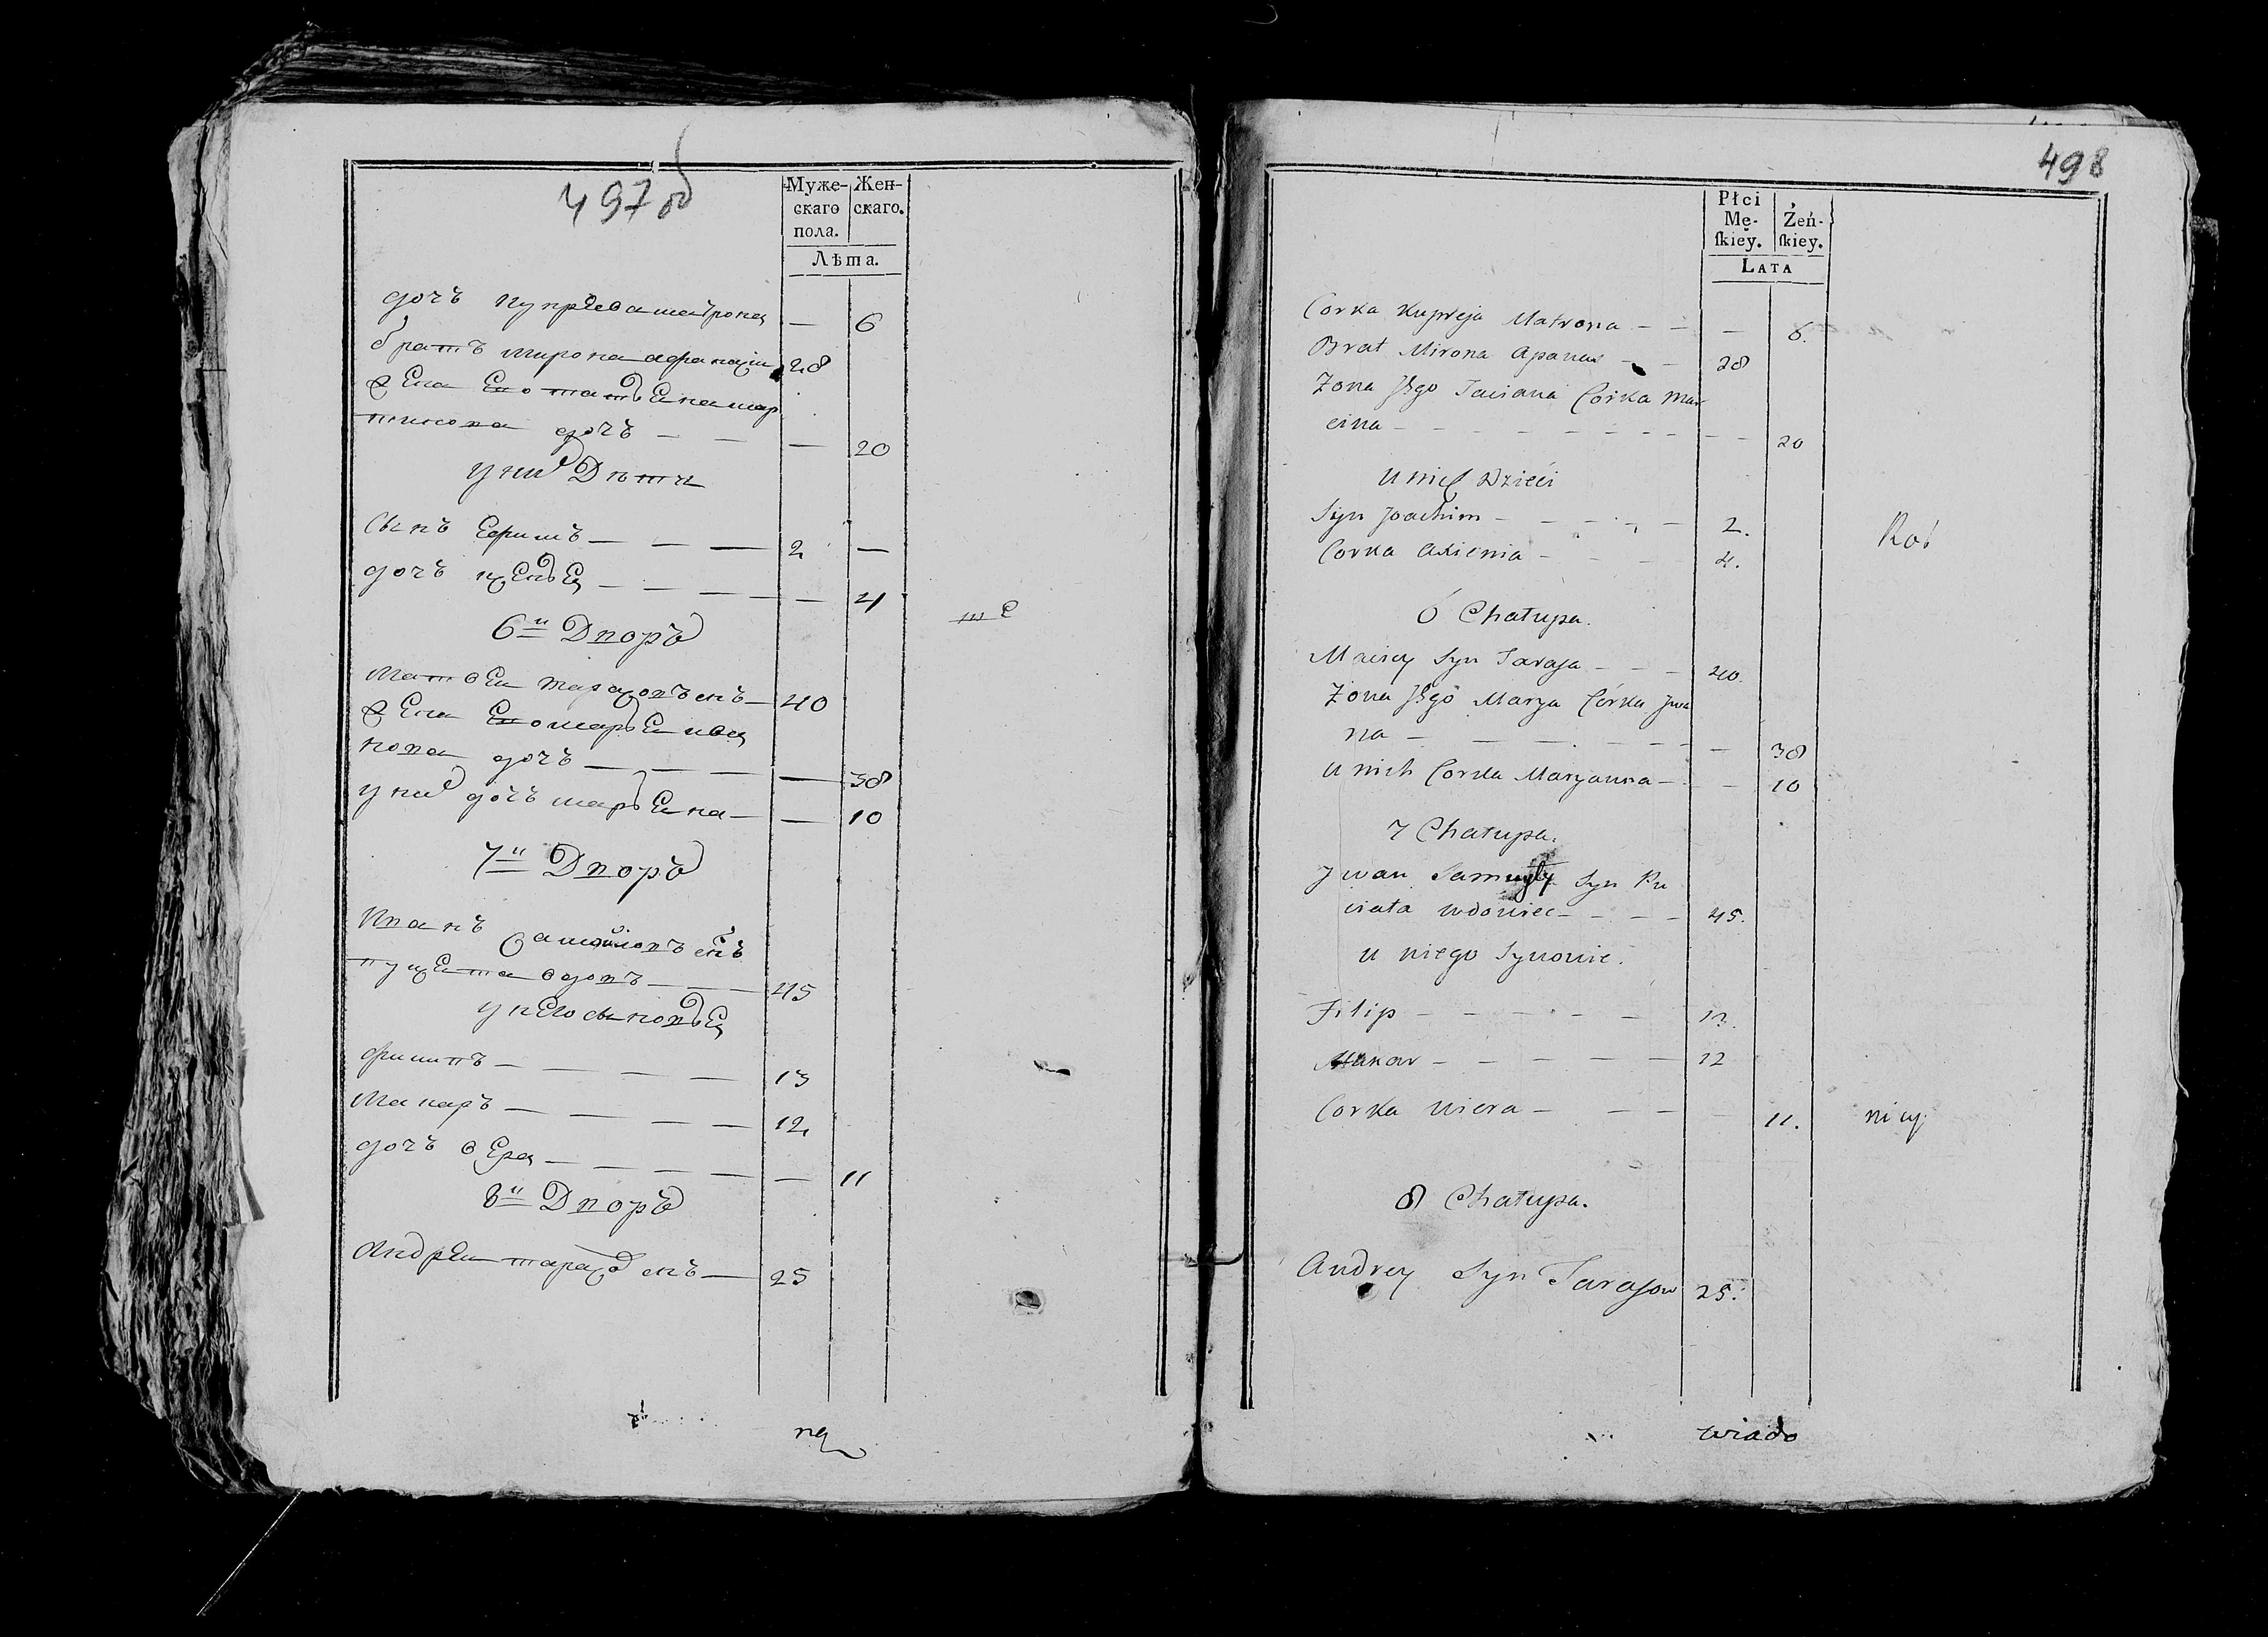 497 об
Муже- Жен-
скаго скаго.
пола.
Лѣта.
дочь купрѣева матрона — 6
братъ мирона афанасіи 28
жена Его татьена мар
тинова дочь — — — 20
у них Дѣти
сынъ Ефимъ — — — 2 —
дочь — — — — 4
6й Дворъ
матвеи тарасовъ снъ — 40
жена Его марьея ива
нова дочь — — — — 38
у них дочь марьена — — 10
7й Дворъ
иванъ самойловъ снъ
пуцета вдовъ — — 45
у него сыновья
филипъ — — — — 13
макаръ — — — — 12
дочь вера — — — — — 11
8й Дворъ
Андреи тарасов снъ — 25
на
498
Płci
Mę- Żeń-
skiey. skiey.
LATA
Corka Kupreja Matrona — — — 6.
Brat Mirona Apanas — — 28
Żona Jego Taciana Corka Mar
cina — — — — — — — — — — 20
U nich Dzieci
Syn Joachim — — — — — 2.
Corka Axienia — — — 4.
Rob
те
6 Chałupa.
Maciey Syn Tarasa — — — 40.
Żona Jego Marya Córka Jwa
na — — — — — — — 38
U nich Corka Maryanna — — 10
7 Chałupa.
Jwan Samuyły Syn Pu
ciata wdowiec — — — — 45.
u niego Synowie.
Filip — — — — — — 13.
Makar — — — — — 12
Corka Wiera — — — — 11.
nicy
8 Chałupa.
Andrey Syn Tarasow 25.
wiado